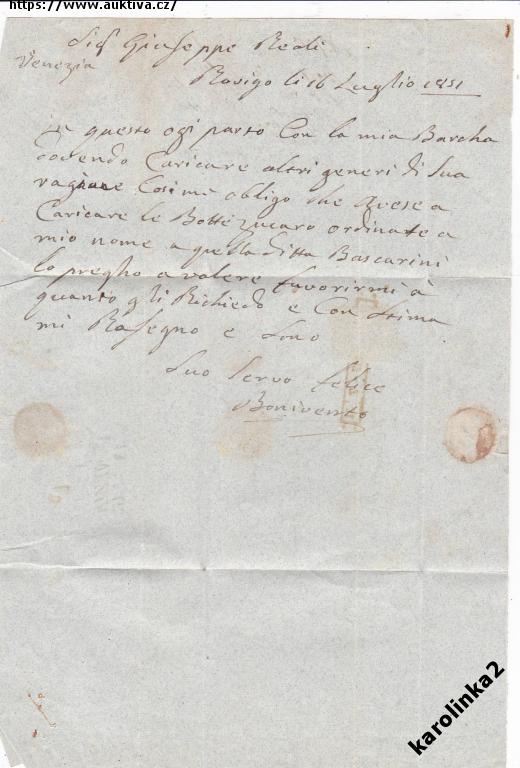 https://www.auktiva.cz/
Sig Giuseppe Reali
Venezia
Rovigo li 16 Luglio 1851
questo ogi parto Con la mia Barcha
dovendo Caricare altri generi di Sua
ragione Cosi me obligo che avese a
Caricare le Botte zucaro ordinate a
mio nome a quella Ditta Bascarini
lo pregho a volere favorirmi à
quanto gli Richiedo e Con Stima
mi Rasegno e Sono
Suo Servo Felice
Bonivento
karolinka2